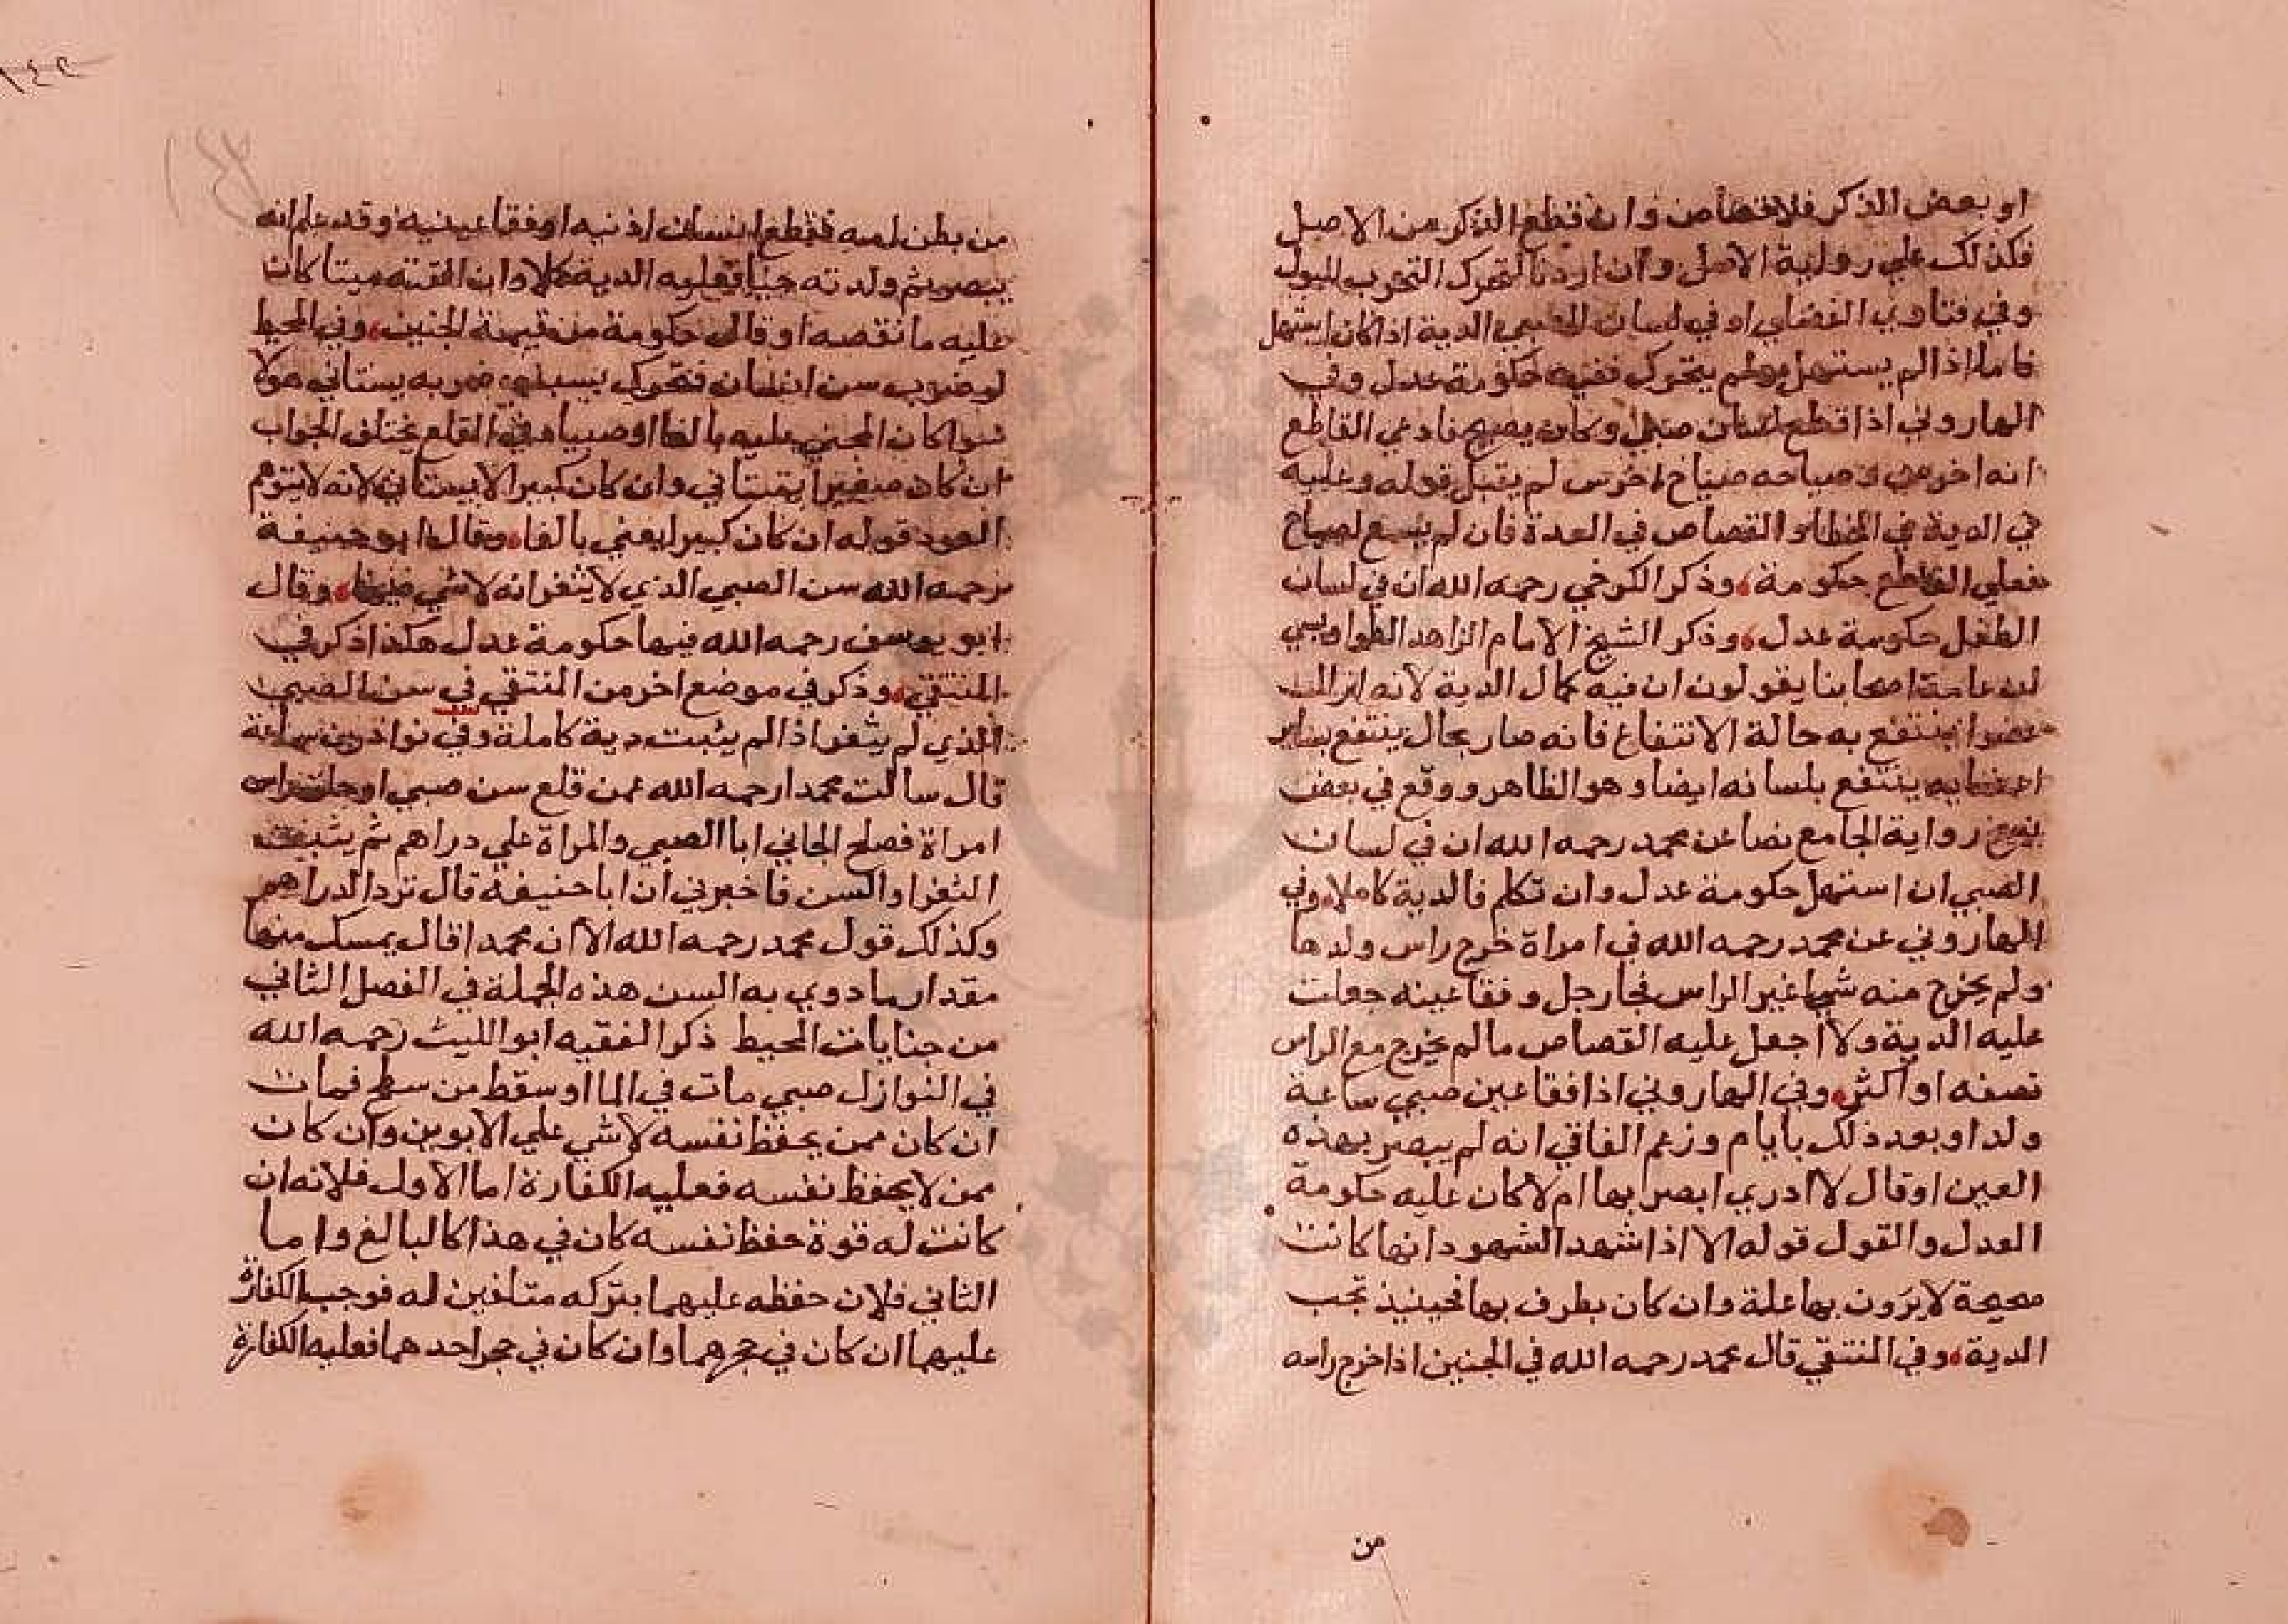 او بعض الذكر فلا قصاص وان قطع الذكر من الاصل
فكذلك علي رواية الاصل وان اردنا التحرك التحرك للبول
وفي فتاوي الفضلي وفي لسان الصبي الدية اذا كان استهل
فاما اذا لم يستهل ولم يتحرك ففيه حكومة عدل وفي
الهاروني اذا قطع لسان صبي وكان يصيح فادعي القاطع
انه اخرس وصياحه صياح اخرس لم يقبل قوله وعليه
في الدية في الخطا والقصاص في العمدة فان لم يسمع لصياح
فعلي القاطع حكومة وذكر الكرخي رحمه الله ان في لسان
الطفل حكومة عدل وذكر الشيخ الامام الزاهد الطواويسي
ان عامة اصحابنا يقولون ان فيه كمال الدية لانه اتلف
عضوا ينتفع به حالة الانتفاع فانه صار بحال ينتفع بساير
اعضايه ينتفع بلسانه ايضا وهو الظاهر ووقع في بعض
نسخ رواية الجامع نصا عن محمد رحمه الله ان في لسان
الصبي ان استهل حكومة عدل وان تكلم فالدية كاملا وفي
الهاروني عن محمد رحمه الله في امراة خرج راس ولدها
ولم يخرج منه شيا غير الراس فجا رجل وفقا عينه جعلت
عليه الدية ولا اجعل عليه القصاص ما لم يخرج مع الراس
نصفه او اكثر وفي الهاروني اذا فقا عين صبي ساعة
ولد او بعد ذلك بايام وزعم الفاقي انه لم يبصر بهذه
العين او قال لا ادري ابصر بها ام لا كان عليه حكومة
العدل والقول قوله الا اذا شهد الشهود انها كانت
صحيحة لا يرون بها علة وان كان يطرف بها فحينيذ تجب
الدية وفي المنتقي قال محمد رحمه الله في الجنين اذا خرج راسه
من
١٤٢
١٤٢
من بطن امه فقطع انسان اذنيه او فقا عينيه وقد علم انه
يبصر ثم ولدته حيا فعليه الدية وان القته ميتا كان
عليه ما نقصه او قال حكومة من قيمة الجنين وفي المحيط
لو ضرب سن انسان فتحرك يستاني حولا
سوا كان المجني عليه بالغا او صبيا وفي القلع يختلف الجواب
ان كان صغيرا يستاني وان كان كبيرا لا يستاني لانه لا يتوهم
العود قوله ان كان كبيرا يعني بالغا وقال ابو حنيفة
رحمه الله سن الصبي الذي لا يثغر انه لا شي فيها وقال
ابو يوسف رحمه الله فيها حكومة عدل هكذا ذكر في
المنتقي وذكر في موضع اخر من المنتقي في سن الصبي
الذي لم يثغر اذا لم يثبت دية كاملة وفي نوادر بن سماعة
قال سالت محمدا رحمه الله عمن قلع سن صبي او حلق راس
امراة فصلح الجاني ابا الصبي والمراة علي دراهم ثم ينبت
الشعر او السن فاخبرني ان ابا حنيفة قال ترد الدراهم
وكذلك قول محمد رحمه الله الا ان محمدا قال يمسك منها
مقدار ما دوي به السن هذه الجملة في الفصل الثاني
من جنايات المحيط ذكر الفقيه ابو الليث رحمه الله
في النوازل صبي مات في الما او سقط من سطح فمات
ان كان ممن يحفظ نفسه لا شي علي الابوين وان كان
ممن لا يحفظ نفسه فعليه الكفارة اما الاول فلانه ان
كانت له قوة حفظ نفسه كان في هذا كالبالغ واما
الثاني فلان حفظه عليهما بتركه متلفين له فوجب الكفارة
عليهما ان كان في حجرهما وان كان في حجر احدهما فعليه الكفارة